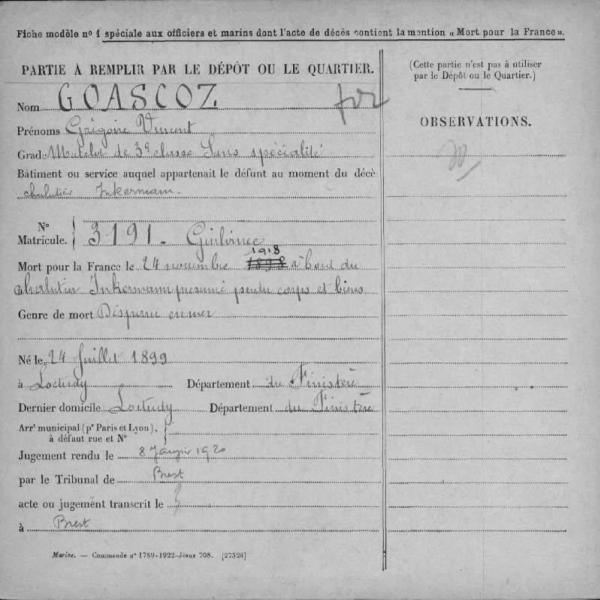 Fiche modèle n° 1 spéciale aux officiers et marins dont l'acte de décès contient la mention « Mort pour la France ».
PARTIE À REMPLIR PAR LE DÉPÔT OU LE QUARTIER.
Nom GOASCOZ
Prénoms Grégoire Vincent
Grade Matelot de 3e classe Sans spécialité
Bâtiment ou service auquel appartenait le défunt au moment du décè
chalutier Inkerman.
N°
Matricule. 3191 - Guilvinec
1918
Mort pour la France le 24 novembre 1898 à bord du
chalutier Inkermann présumé perdu corps et biens
Genre de mort Disparu en mer
Né le 24 Juillet 1899
à Loctudy Département du Finistère
Dernier domicile Loctudy Département du Finistère
Arrt municipal (pr Paris et Lyon),
à défaut rue et N°
Jugement rendu le 8 Janvier 1920
par le Tribunal de Brest
acte ou jugement transcrit le
à Brest
Marine. — Commande n° 1789-1922-Jésus 708. [27524]
(Cette partie n'est pas à utiliser
par le Dépôt ou le Quartier.)
OBSERVATIONS.